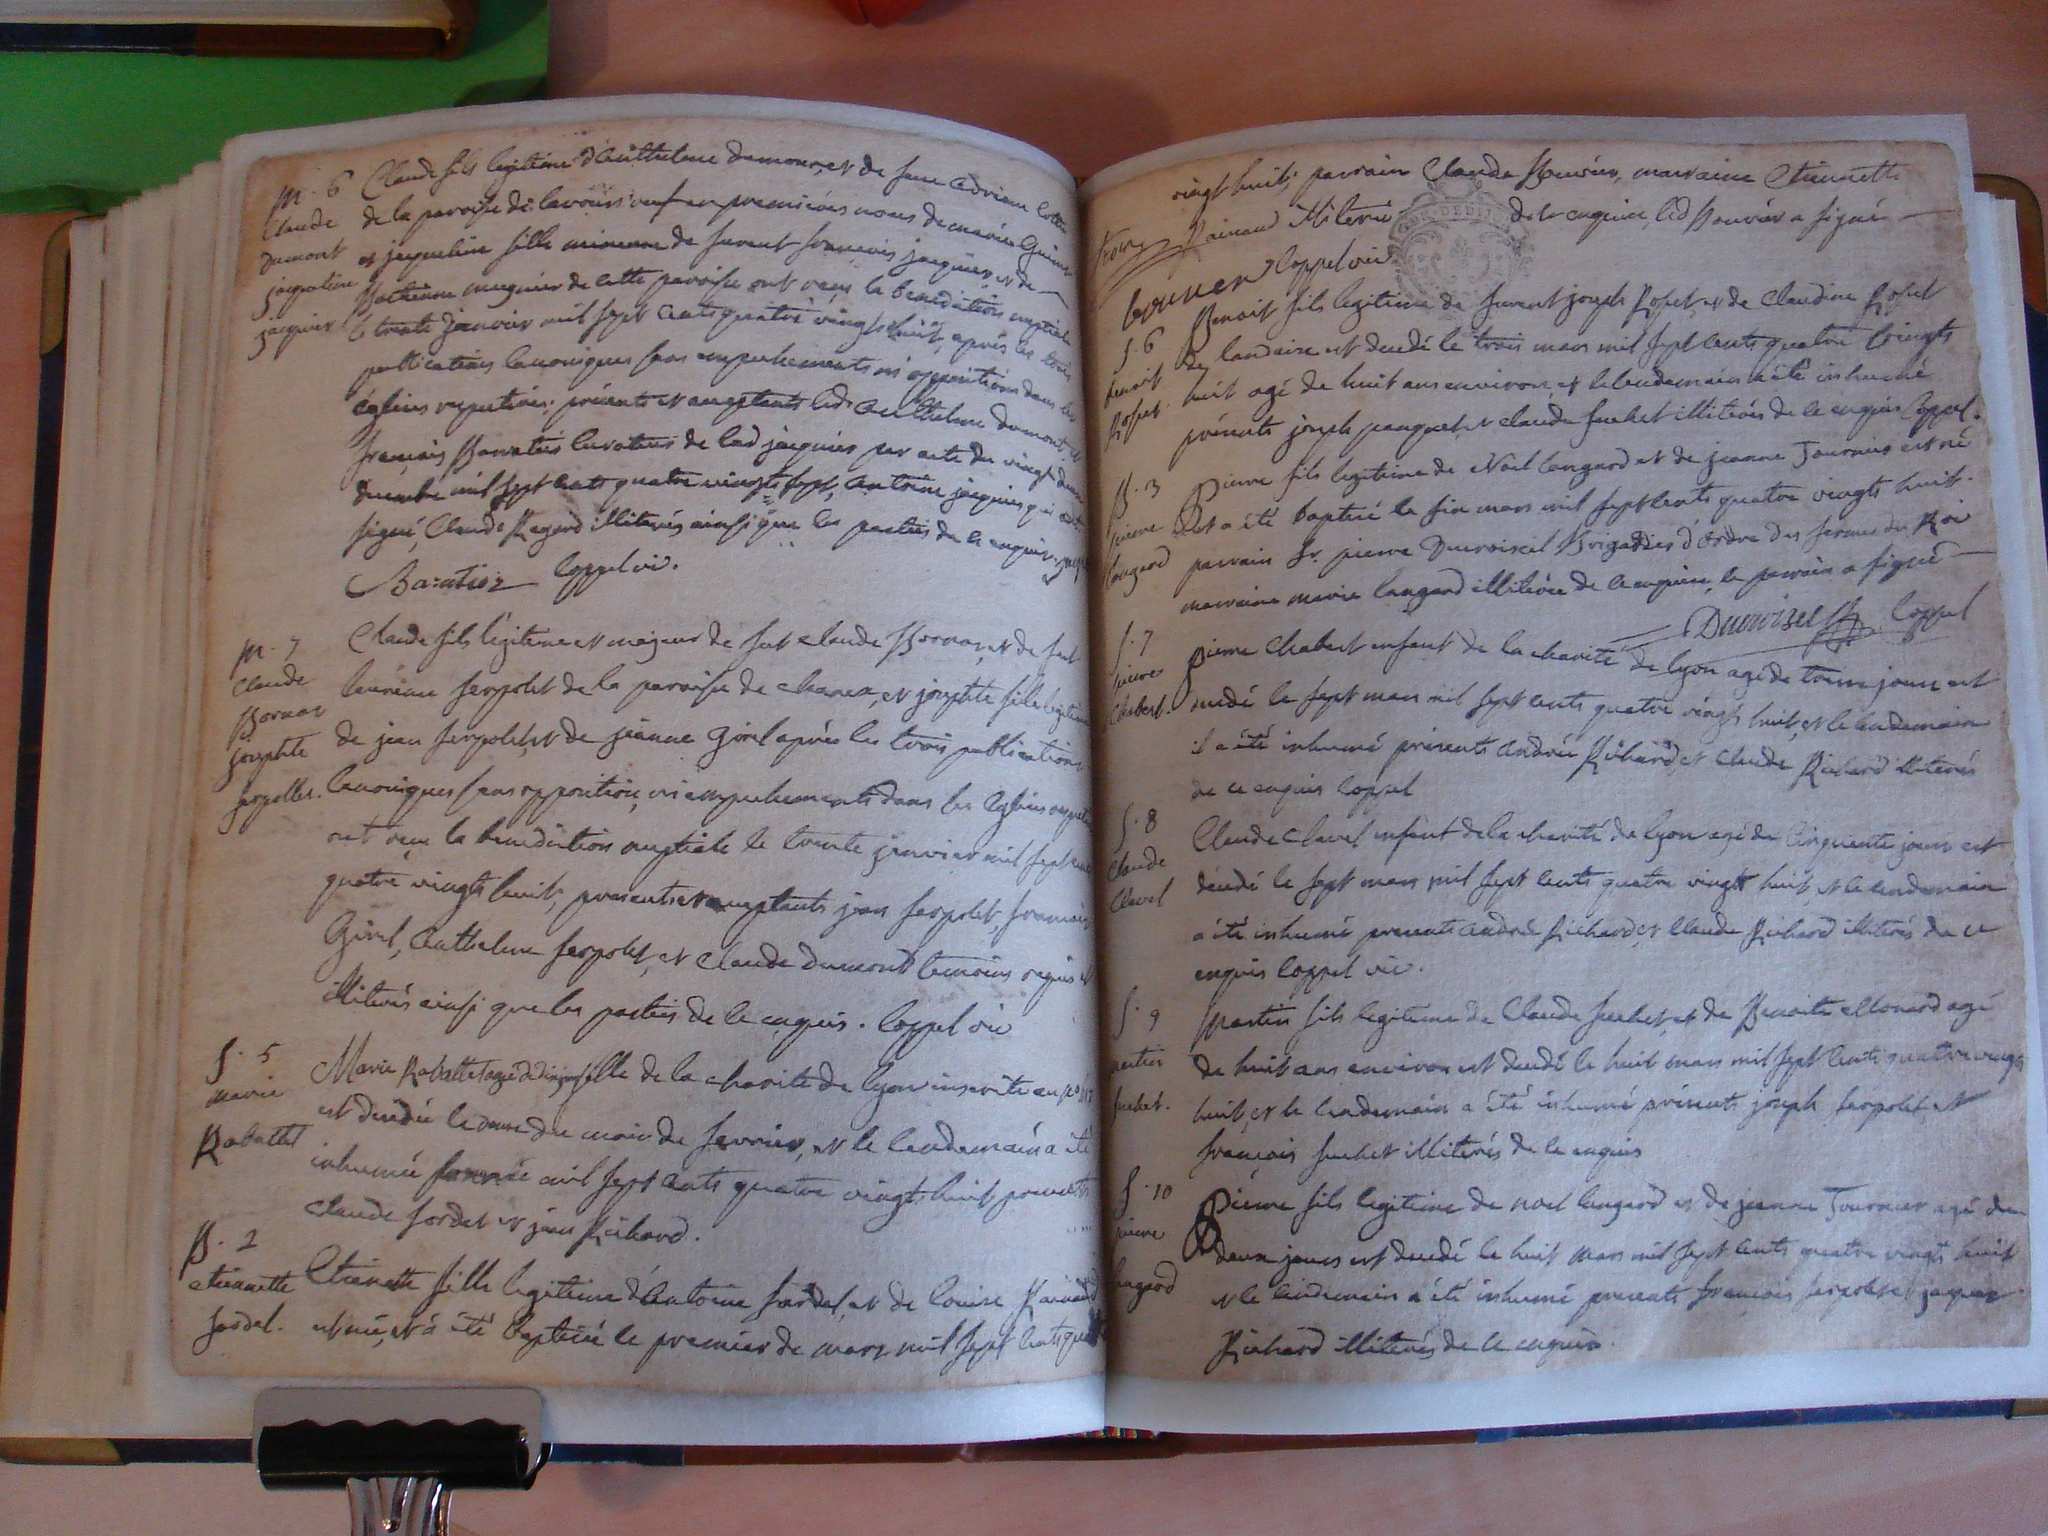 M. 6
Claude
dumont
jaqueline
jaquier
Claude fils legitime d'Anthelme dumont, et de feue adriane
de la paroise de lavours veuf en premieres noces de marie
et jaqueline fille mineure de furent françois jaquier, et de
mugnier de cette paroise ont reçu la benediction nuptiale
le trente janvier mil sept cents quatre vingts huit, après les trois
publications canoniques sans empechements ni oppositions dans les
églises respectives, présents et acceptants led. anthelme dumont, et
françois Barratier curateur de lad jaquier par acte du vingt
decembre mil sept cents quatre vingts sept, antoine jaquier qui ont
signé, Claude Regard illiterés ainsi que les parties de ce enquis
Baratier Coppel vic.
M. 7
Claude
Bornar
josephte
serpollet.
Claude fils légitime et majeur de feu Claude Bornar, et de feue
serpolet de la paroise de chanaz, et josephte fille legitime
de jean serpolet, et de jeanne Girel après les trois publications
Canoniques sans opposition, ni empechements dans les Eglises
ont reçu la benediction nuptiale le trente janvier mil sept cents
quatre vingts huit, presents et acceptants jean serpolet, françois
Girel, Anthelme serpolet, et Claude dumont temoins requis et
illiterés ainsi que les parties de ce enquis. Coppel vic
S. 5
marie
Rabattet
Marie Rabattet agée de fille de la charité de lyon inscrite au no
est decedée le onze du mois de fevrier, et le lendemain a été
inhumée mil sept cents quatre vingts huit, presents
Claude sordet et jean Richard.
B. 2
etiennette
sordel.
Etiennette fille legitime d'Antoine sordel, et de louise Rainaud
est née, et a été baptisée le premier de mars mil sept cents
vingt huit, parrain Claude Bouvier, marraine Etiennette
Rainaud illiterée de ce enquise, led Bouvier a signé
bouvier Coppel vic
S. 6
benoit
Rosset.
Benoit fils legitime de furent joseph Rosset, et de Claudine Rosset
de landaise est decedé le trois mars mil sept cents quatre vingts
huit agé de huit ans environ, et le lendemain a été inhumé
présents joseph et claude suchet illiterés de ce enquis Coppel.
B. 3
pierre
langard
Pierre fils legitime de Noël langard et de jeanne Tournier est né
et a été baptisé le six mars mil sept cents quatre vingts huit.
parrain Sr. pierre Dumoisel Brigadier d'ordre des fermes du Roi
marraine marie langard illiterée de ce enquise, le parrain a signé
Dumoisel Coppel
S. 7
pierre
Chabert.
Pierre Chabert enfant de la charité de lyon agé de jours est
decedé le sept mars mil sept cents quatre vingts huit, et le lendemain
il a été inhumé présents andré Richard, et Claude Richard illiterés
de ce enquis Coppel
S. 8
Claude
Clavel
Claude Clavel enfant de la charité de lyon agé de Cinquante jours est
decedé le sept mars mil sept cents quatre vingts huit, et le lendemain
a été inhumé presents andré Richard, et Claude Richard illiterés de ce
enquis Coppel vic.
S. 9
martin
suchet.
Martin fils legitime de Claude suchet, et de Benoite agé
de huit ans environ est decedé le huit mars mil sept cents quatre vingts
huit, et le lendemain a été inhumé présents joseph serpolet, et
françois suchet illiterés de ce enquis
S. 10
pierre
langard
Pierre fils legitime de noel langard et de jeanne Tournier agé de
deux jours est decedé le huit mars mil sept cents quatre vingts huit
et le lendemain a été inhumé presents françois serpolet et jaques
Richard illiterés de ce enquis.